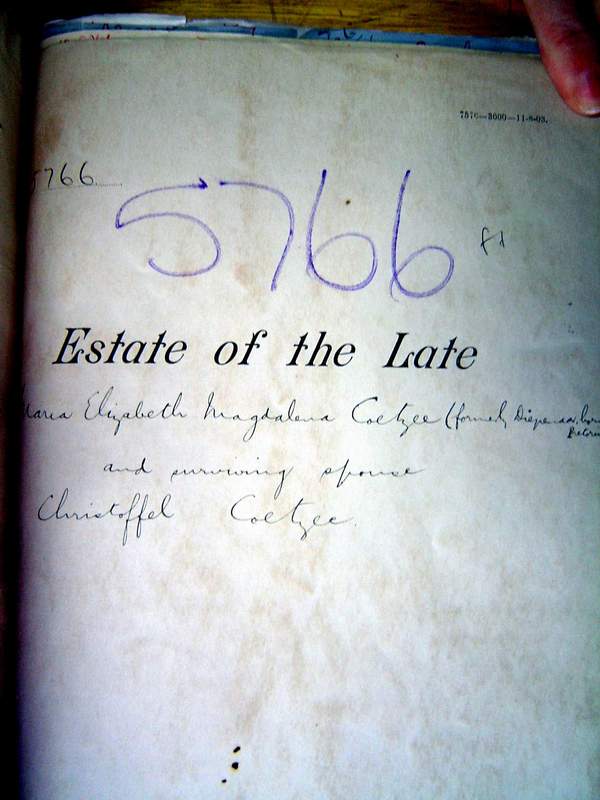 7576—3600—11-8-03.
5766
5766
Estate of the Late
Maria Elizabeth Magdalena Coetzee (formerly
and surviving spouse
Christoffel Coetzee.